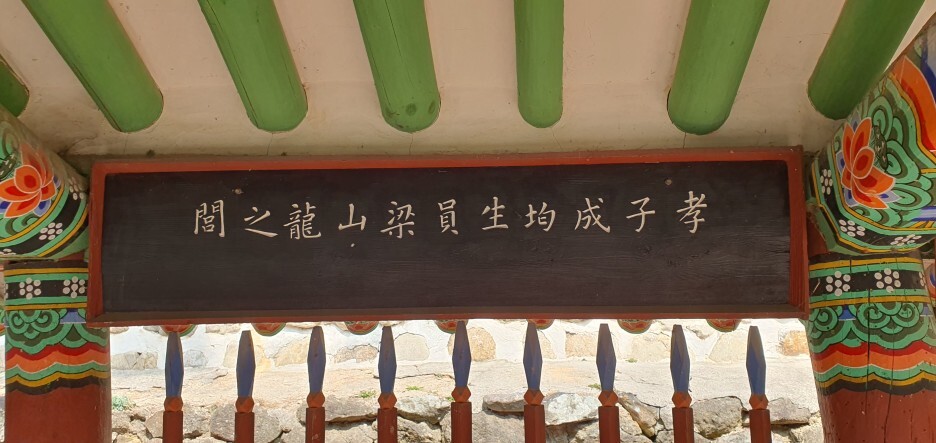 孝子成均生員梁山龍之閭